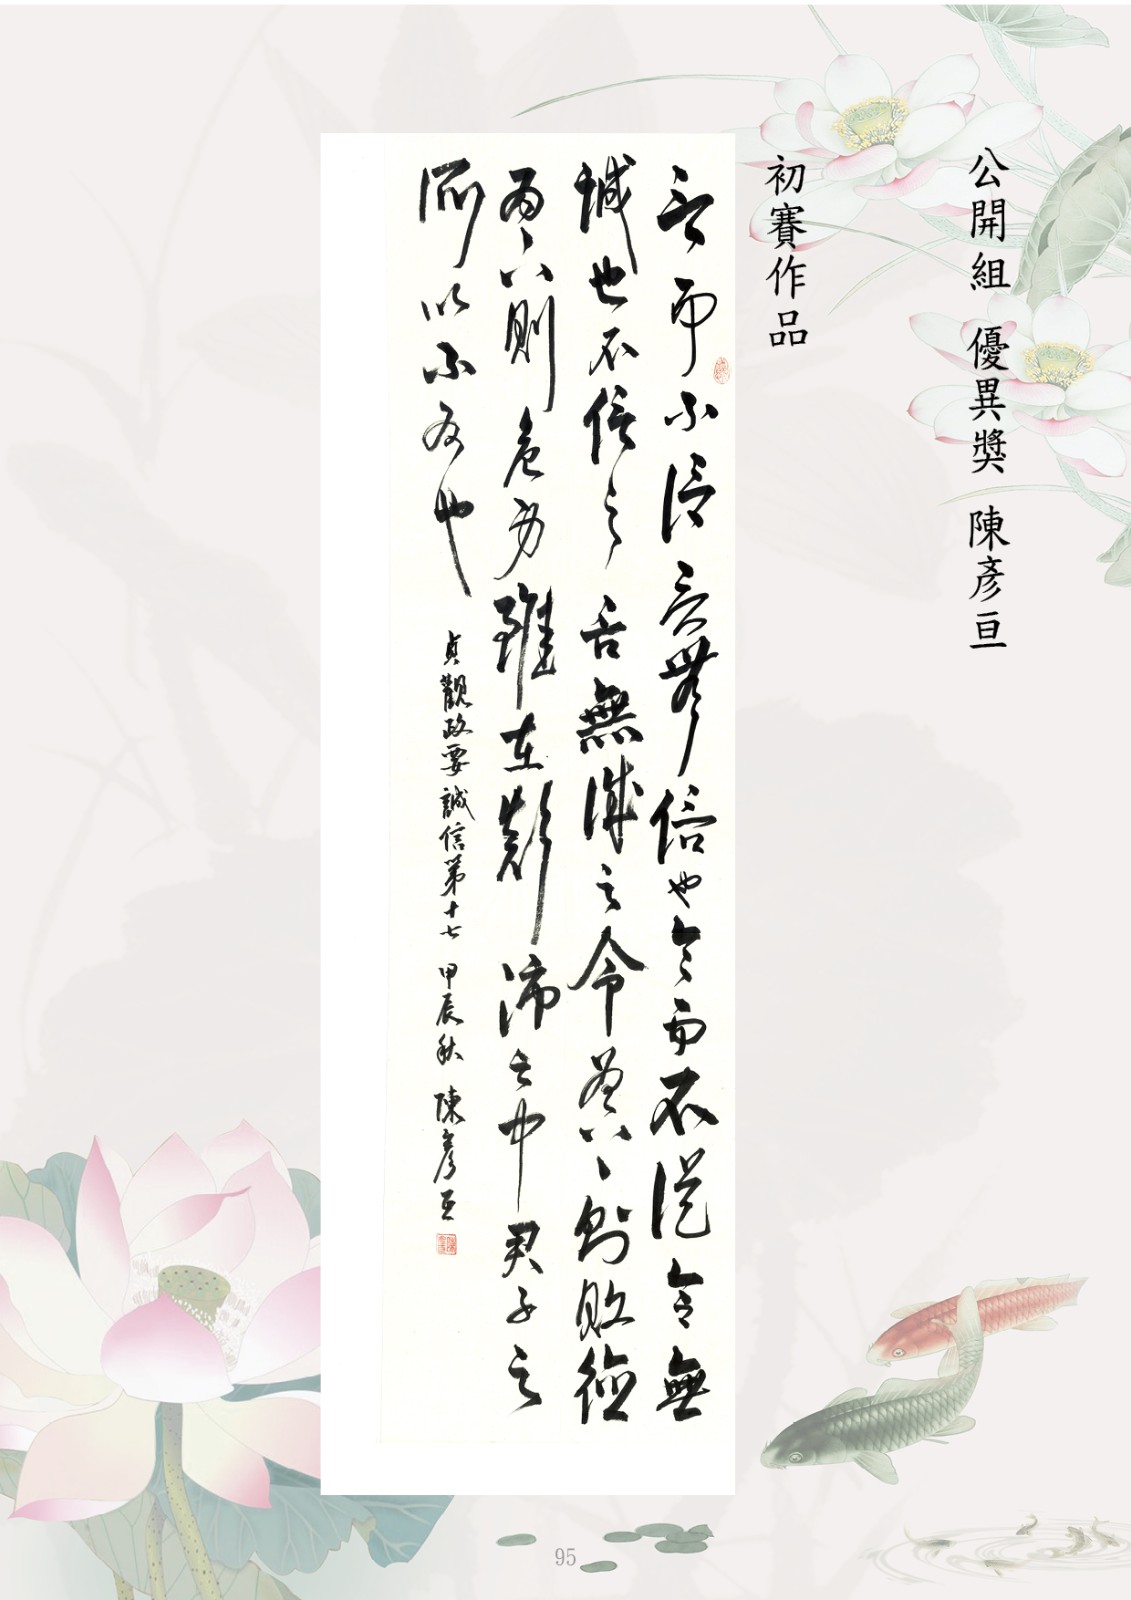 公開組 優異獎 陳彥亘
初賽作品
言而不信言無信也令而不從令無
誠也不信之言無誠之令為上則敗德
為下則危身雖在顛沛之中君子之
所以不為也
貞觀政要誠信第十七 甲辰秋 陳彥亘
95